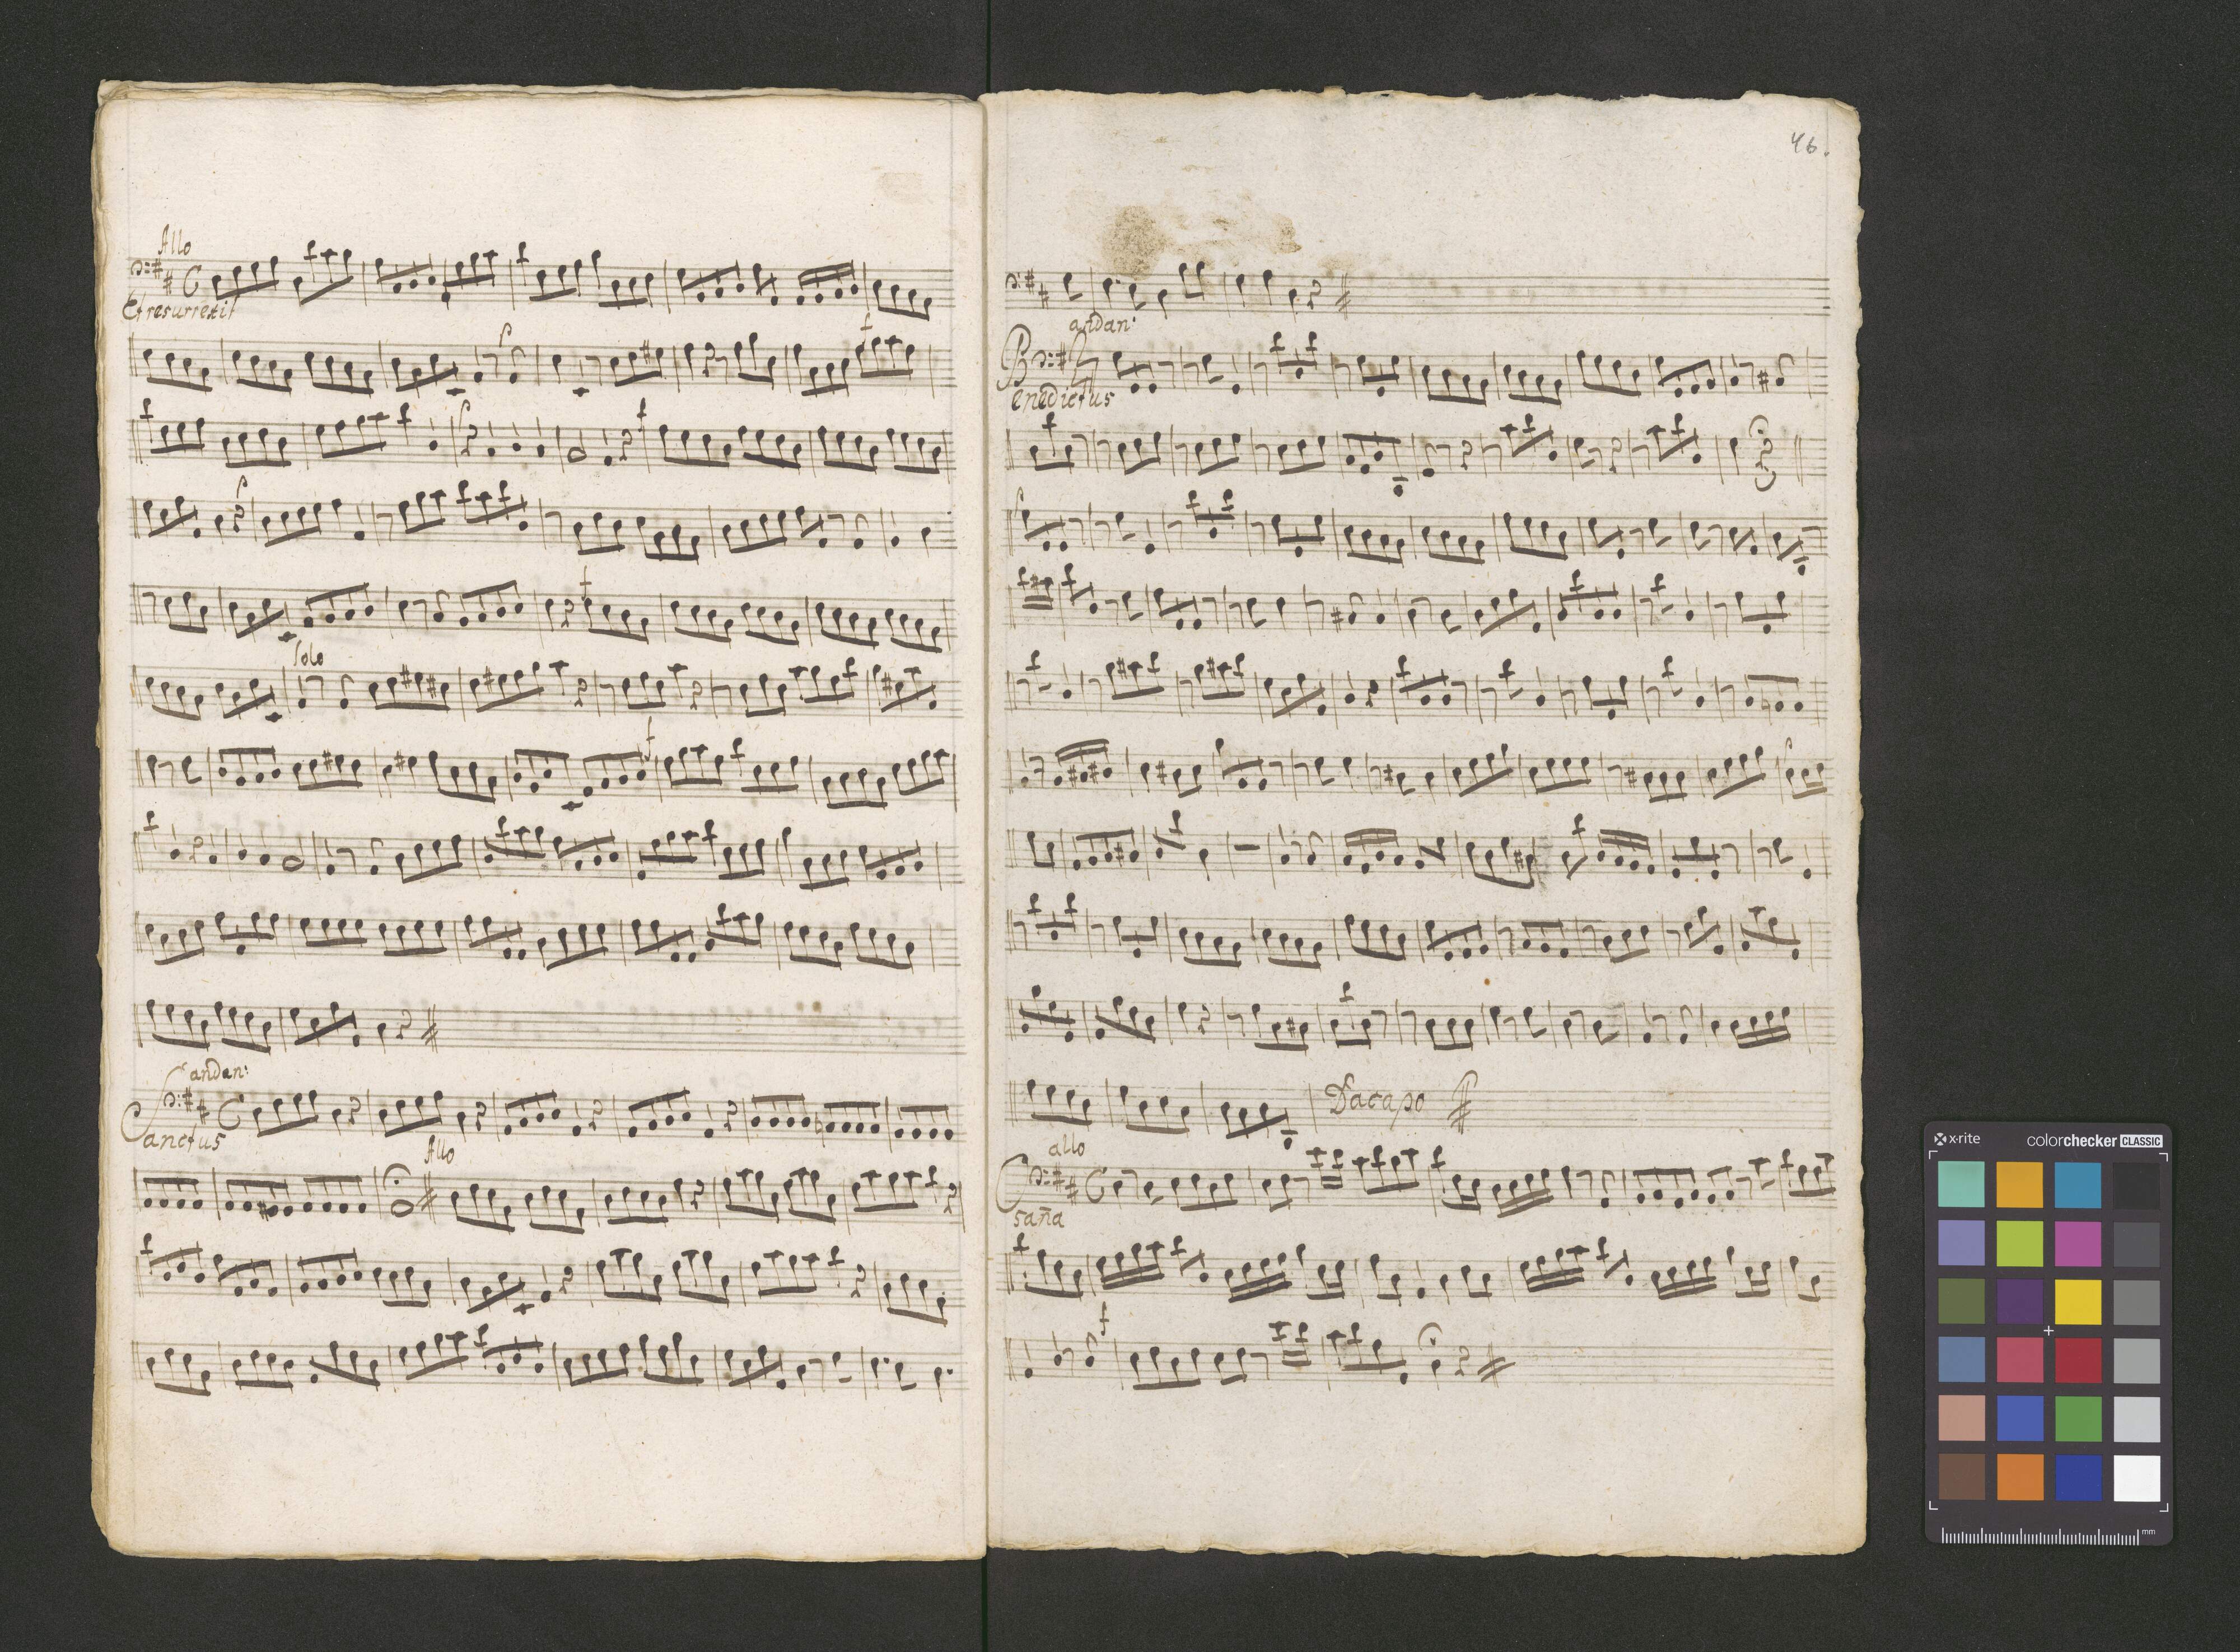 Allo
Et resurrexit
solo
andan:
Sanctus
Allo
46.
andan:
Benedictus
Dacapo
allo
Osaña
x-rite
colorchecker CLASSIC
mm